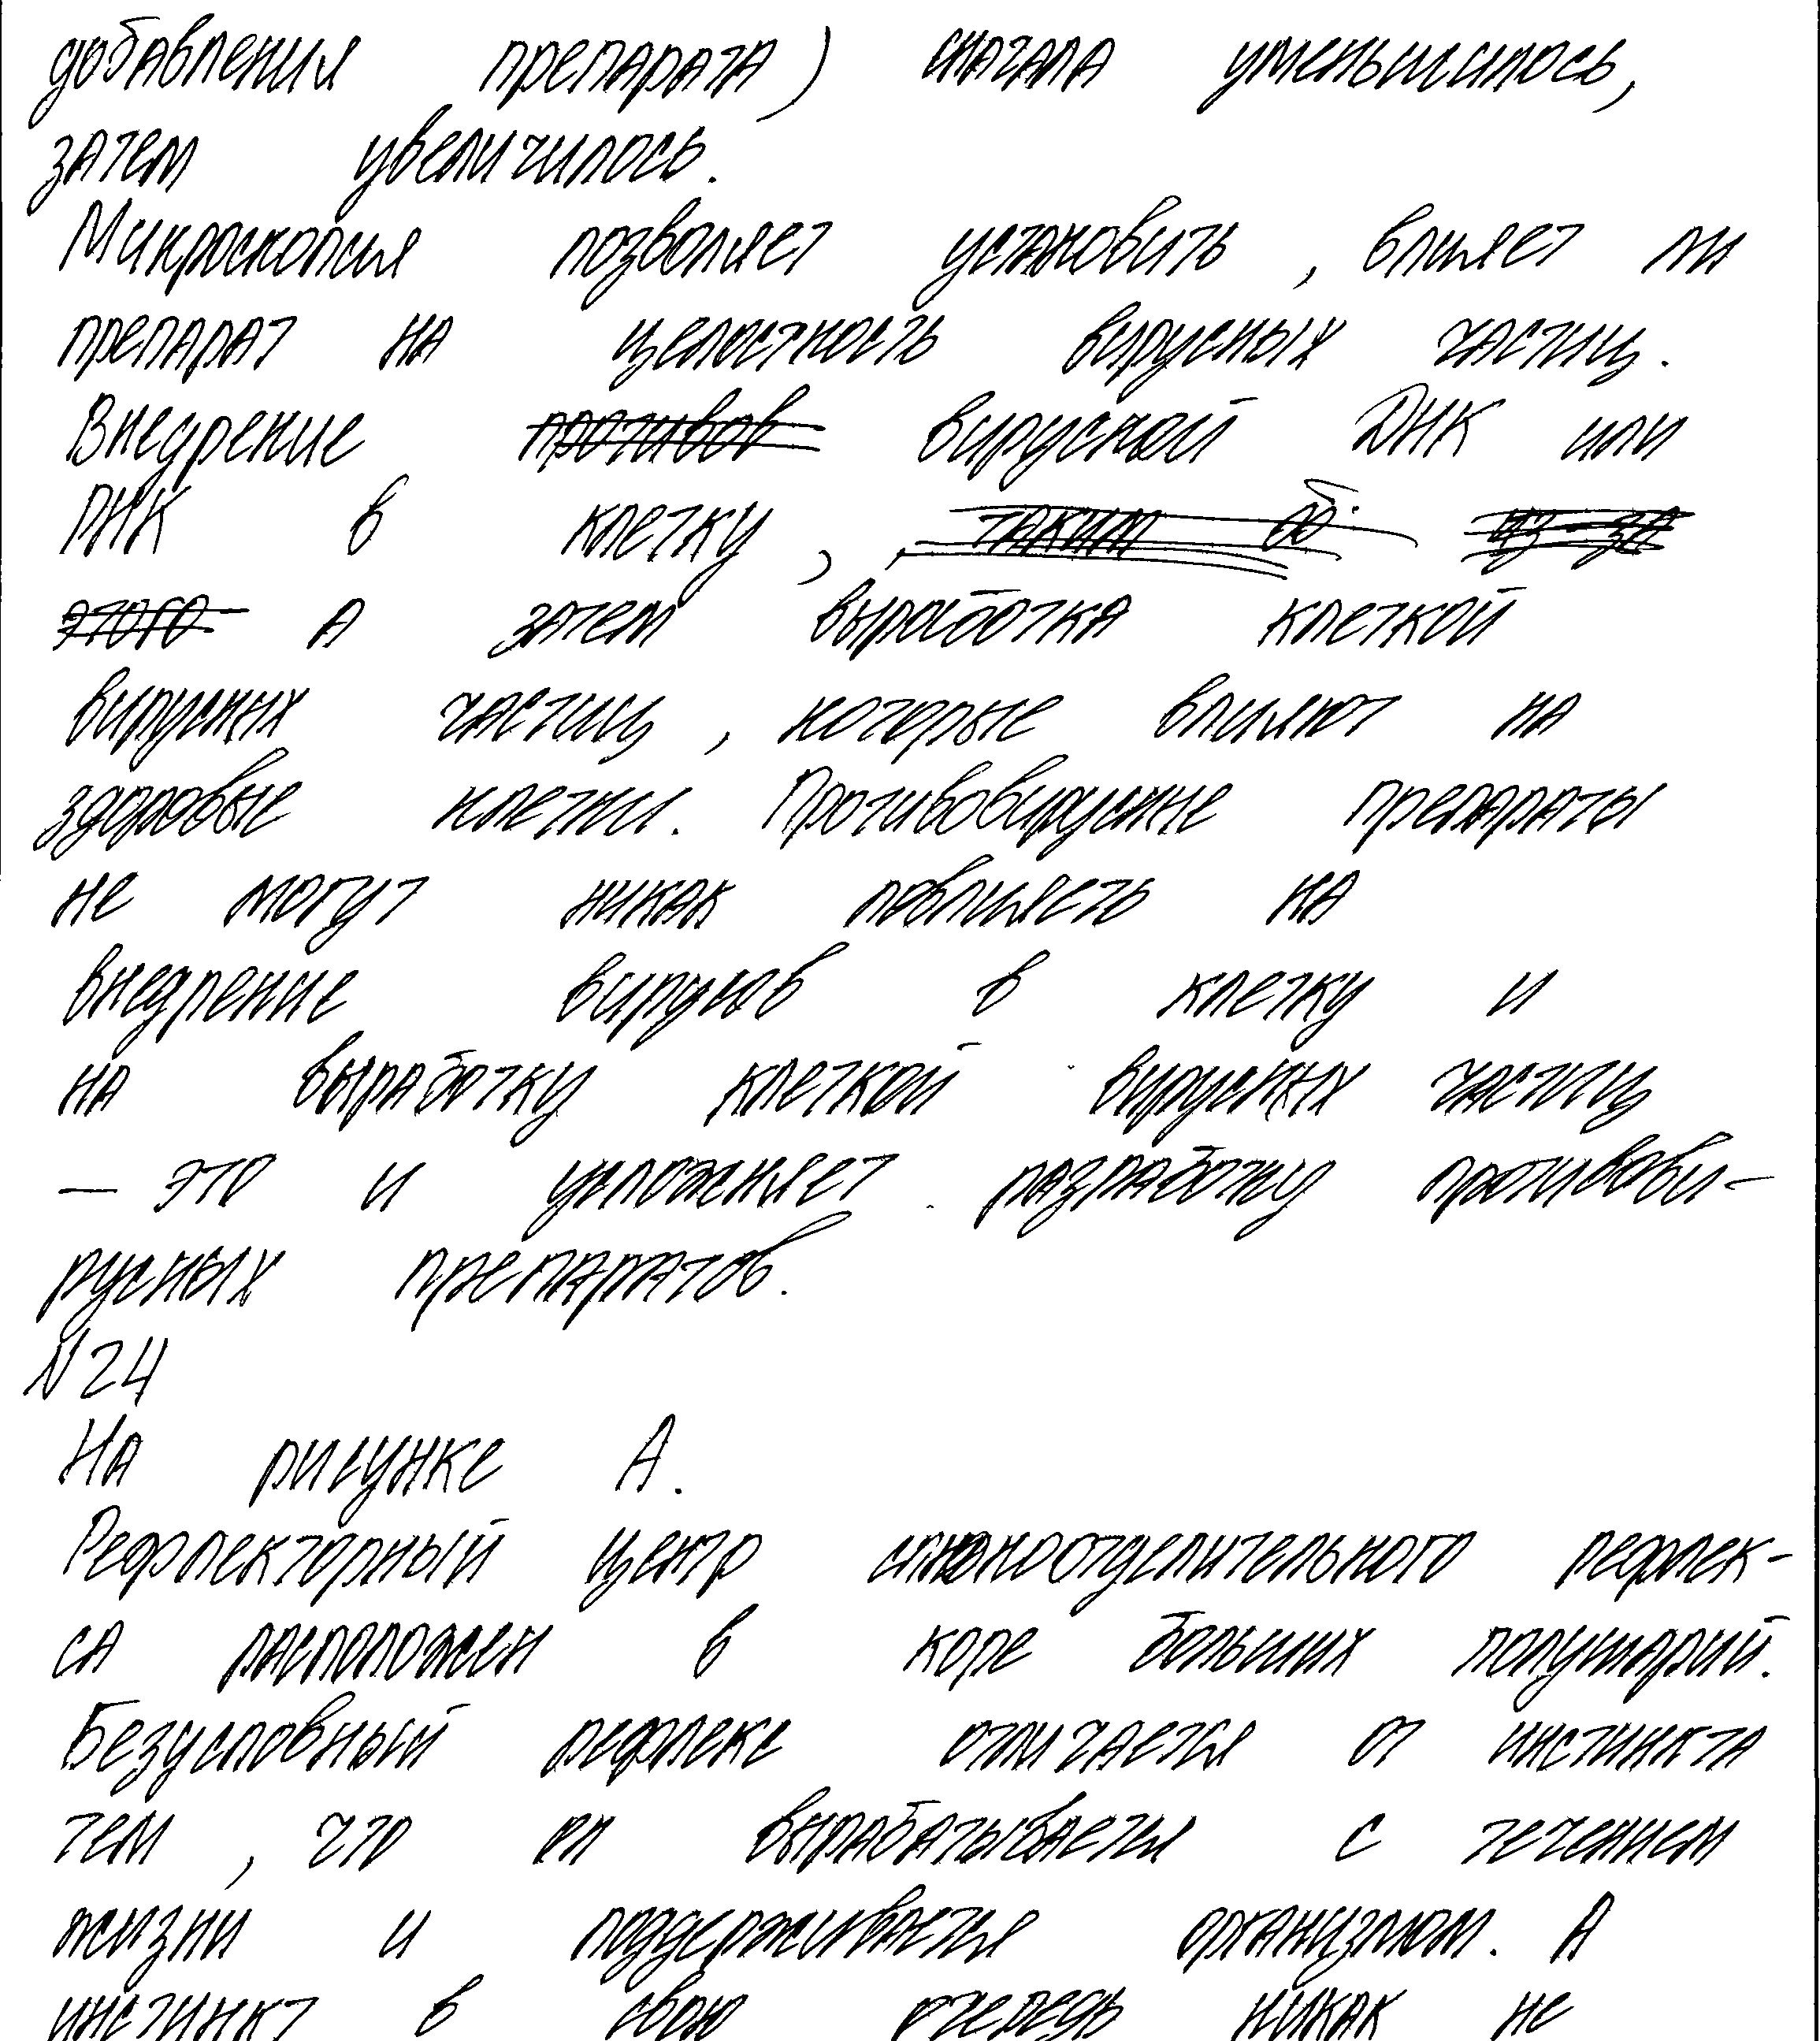 добавления препарата) сначала уменьшилось,
затем увеличилось.
Микроскопия позволяет установить, влияет ли
препарат на целостность вирусных частиц.
Внедрение противов вирусной ДНК или
РНК в клетку, таким об из-за
этого а затем выработка клеткой
вирусных частиц, которые влияют на
здоровые клетки. Противовирусные препараты
не могут никак повлиять на
внедрение вирусов в клетку и
на выработку клеткой вирусных частиц
— это и усложняет разработку противови-
русных препаратов.
N24
На рисунке А.
Рефлекторный центр слюноотделительного рефлек-
са расположен в коре больших полушарий.
Безусловный рефлекс отличается от инстинкта
тем, что он вырабатывается с течением
жизни и поддерживается организмом. А
инстинкт в свою очередь никак не